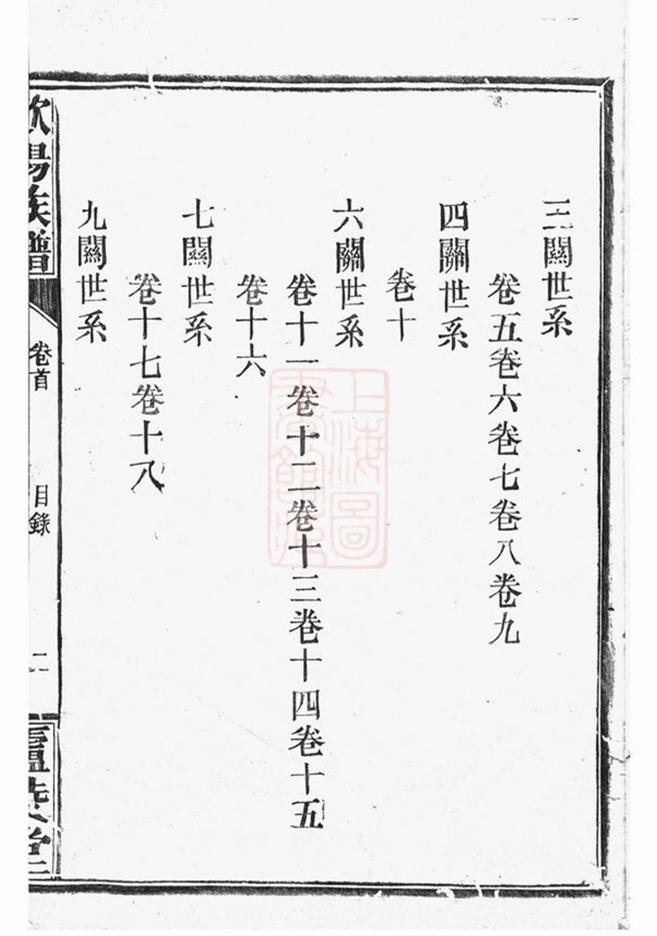 三關世系
卷五卷六卷七卷八卷九
四關世系
卷十
六關世系
卷十一卷十二卷十三卷十四卷十五
卷十六
七關世系
卷十七卷十八
九關世系
族譜
卷首
目錄
二
上海圖